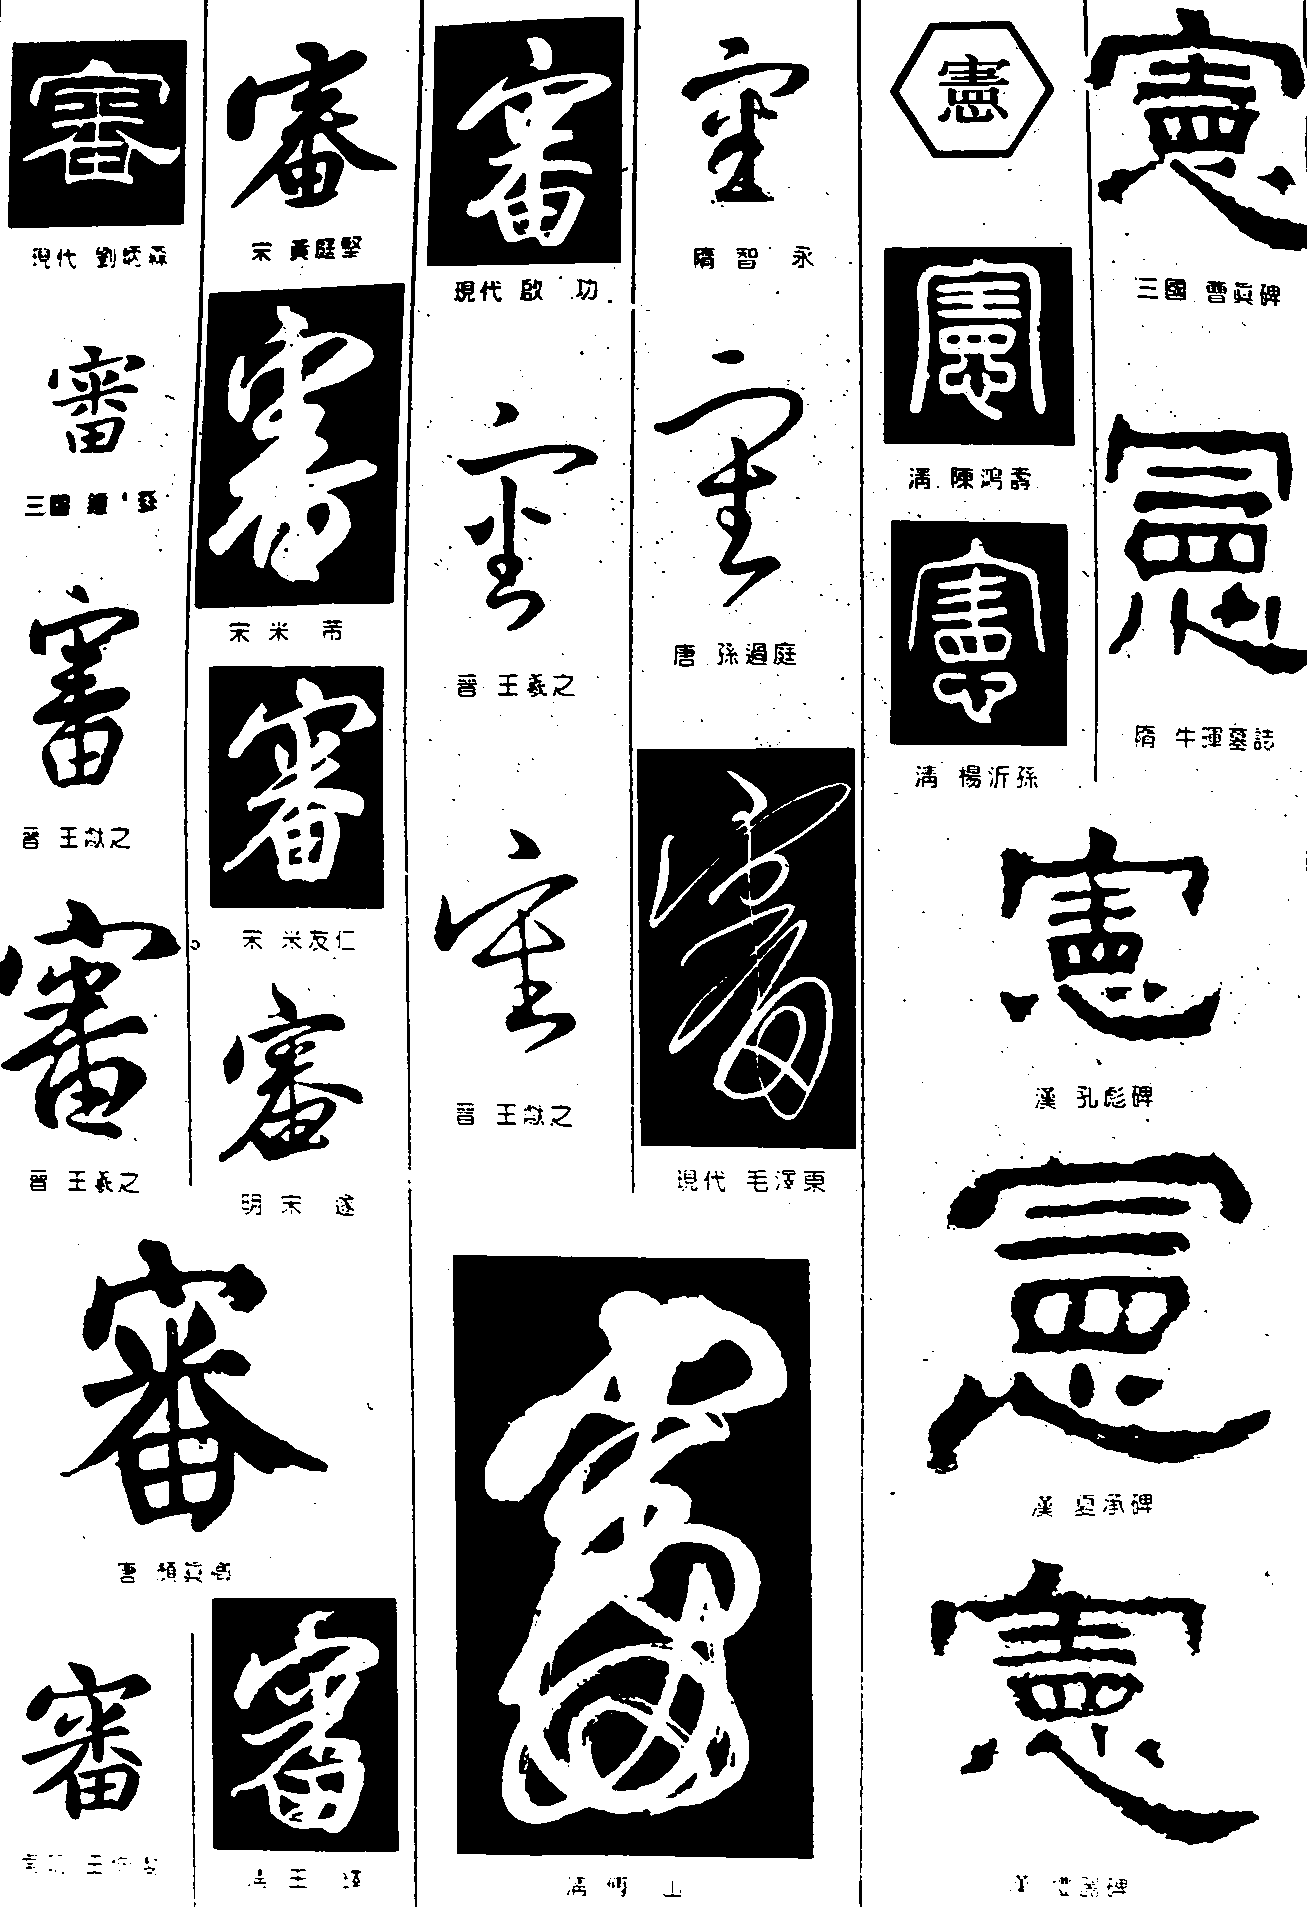 憲
憲
三國 曹真碑
憲
隋 牛暉墓誌
憲
清 陳鴻壽
憲
清 楊沂孫
憲
漢 孔彪碑
憲
漢 夏承碑
憲
審
隋 智永
審
唐 孫過庭
審
現代 毛澤東
審
現代 啟功
審
晉 王羲之
審
晉 王獻之
審
清 傅山
審
宋 黃庭堅
審
宋 米芾
審
宋 米友仁
審
明 宋遂
審
清 王鐸
審
現代 劉炳森
審
三國 鍾繇
審
晉 王獻之
審
晉 王羲之
審
唐 顏真卿
審